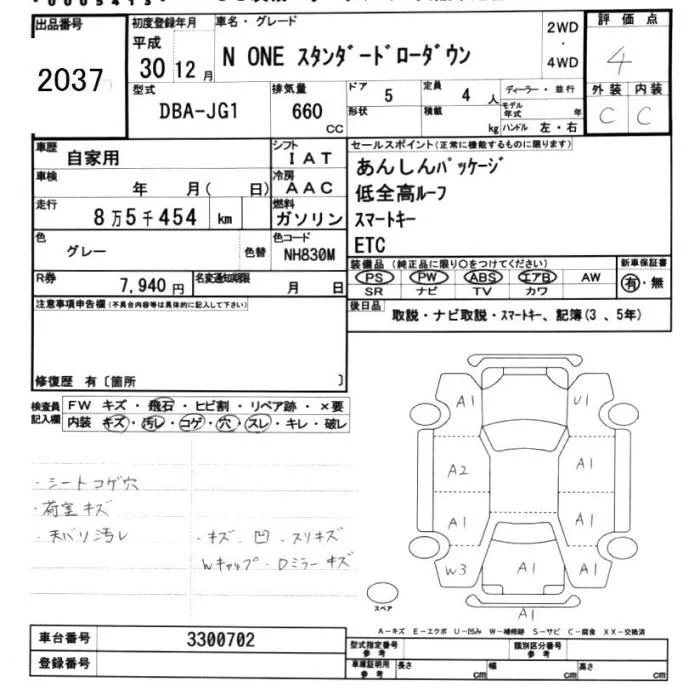 出品番号 2037
初度登録年月 平成 30年 12月
車名・グレード N ONE スタンダードローダウン
2WD・4WD
評価点 4
型式 DBA-JG1
排気量 660 CC
ドア 5
定員 4人
形状
積載 kg
ディーラー・並行
モデル年式 年
ハンドル 左・右
外装 C 内装 C
車歴 自家用
シフト IAT
車検 年 月( 日)
冷房 AAC
走行 8万5千454 km
燃料 ガソリン
色 グレー 色替
色コード NH830M
R券 7,940円
名変通知期限 月 日
セールスポイント(正常に機能するものに限ります)
あんしんパッケージ
低全高ルーフ
スマートキー
ETC
装備品 (純正品に限り○をつけてください)
PS PW ABS エアB AW
SR ナビ TV カワ
新車保証書 有・無
注意事項申告欄(不具合内容等は具体的に記入して下さい)
後日品 取説・ナビ取説・スマートキー、記簿(3、5年)
修復歴 有〔箇所 〕
検査員記入欄
FW キズ・飛石・ヒビ割・リペア跡・×要
内装 キズ・汚レ・コゲ・穴・スレ・キレ・破レ
・シートコゲ穴
・荷室キズ
・天バリ汚レ
・キズ、凹、スリキズ
Wキャップ・Dミラーキズ
A1 U1
A2 A1
A1 A1
W3 A1 A1
A1
スペア
A-キズ E-エクボ U-凹み W-補修跡 S-サビ C-腐食 XX-交換済
車台番号 3300702
登録番号
型式指定番号 参考
類別区分番号 参考
車庫証明用 参考 長さ cm 幅 cm 高さ cm